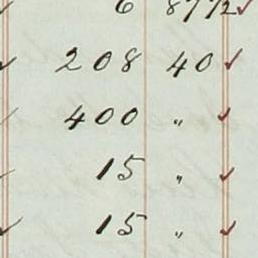 ✓ 6 87½ ✓
✓ 208 40 ✓
✓ 400 " ✓
✓ 15 " ✓
✓ 15 " ✓